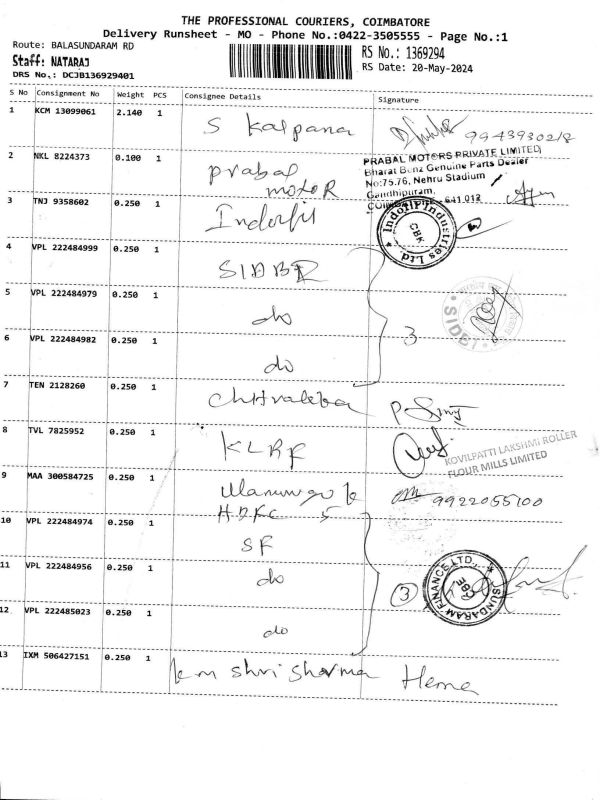 THE PROFESSIONAL COURIERS, COIMBATORE
Delivery Runsheet - MO - Phone No.:0422-3505555 - Page No.:1
Route: BALASUNDARAM RD
Staff: NATARAJ
DRS No.: DCJB136929401
RS No.: 1369294
RS Date: 20-May-2024
S No Consignment No Weight PCS Consignee Details Signature
1 KCM 13099061 2.140 1 S Kalpana 9943930218
2 NKL 8224373 0.100 1 prabal motor
PRABAL MOTORS PRIVATE LIMITED
Bharat Benz Genuine Parts Dealer
No:75,76, Nehru Stadium
Gandhipuram,
641 012
3 TNJ 9358602 0.250 1 Indorfil
Indofil Industries Ltd
CBK
4 VPL 222484999 0.250 1 SIDBI
5 VPL 222484979 0.250 1 do
3
SIDBI
6 VPL 222484982 0.250 1 do
7 TEN 2128260 0.250 1
8 TVL 7825952 0.250 1 KLRF
KOVILPATTI LAKSHMI ROLLER
FLOUR MILLS LIMITED
9 MAA 300584725 0.250 1 9922055100
10 VPL 222484974 0.250 1 SF
11 VPL 222484956 0.250 1 do
3
SUNDARAM FINANCE LTD.,
CBE
12 VPL 222485023 0.250 1 do
13 IXM 506427151 0.250 1 km shri Sharma Hema